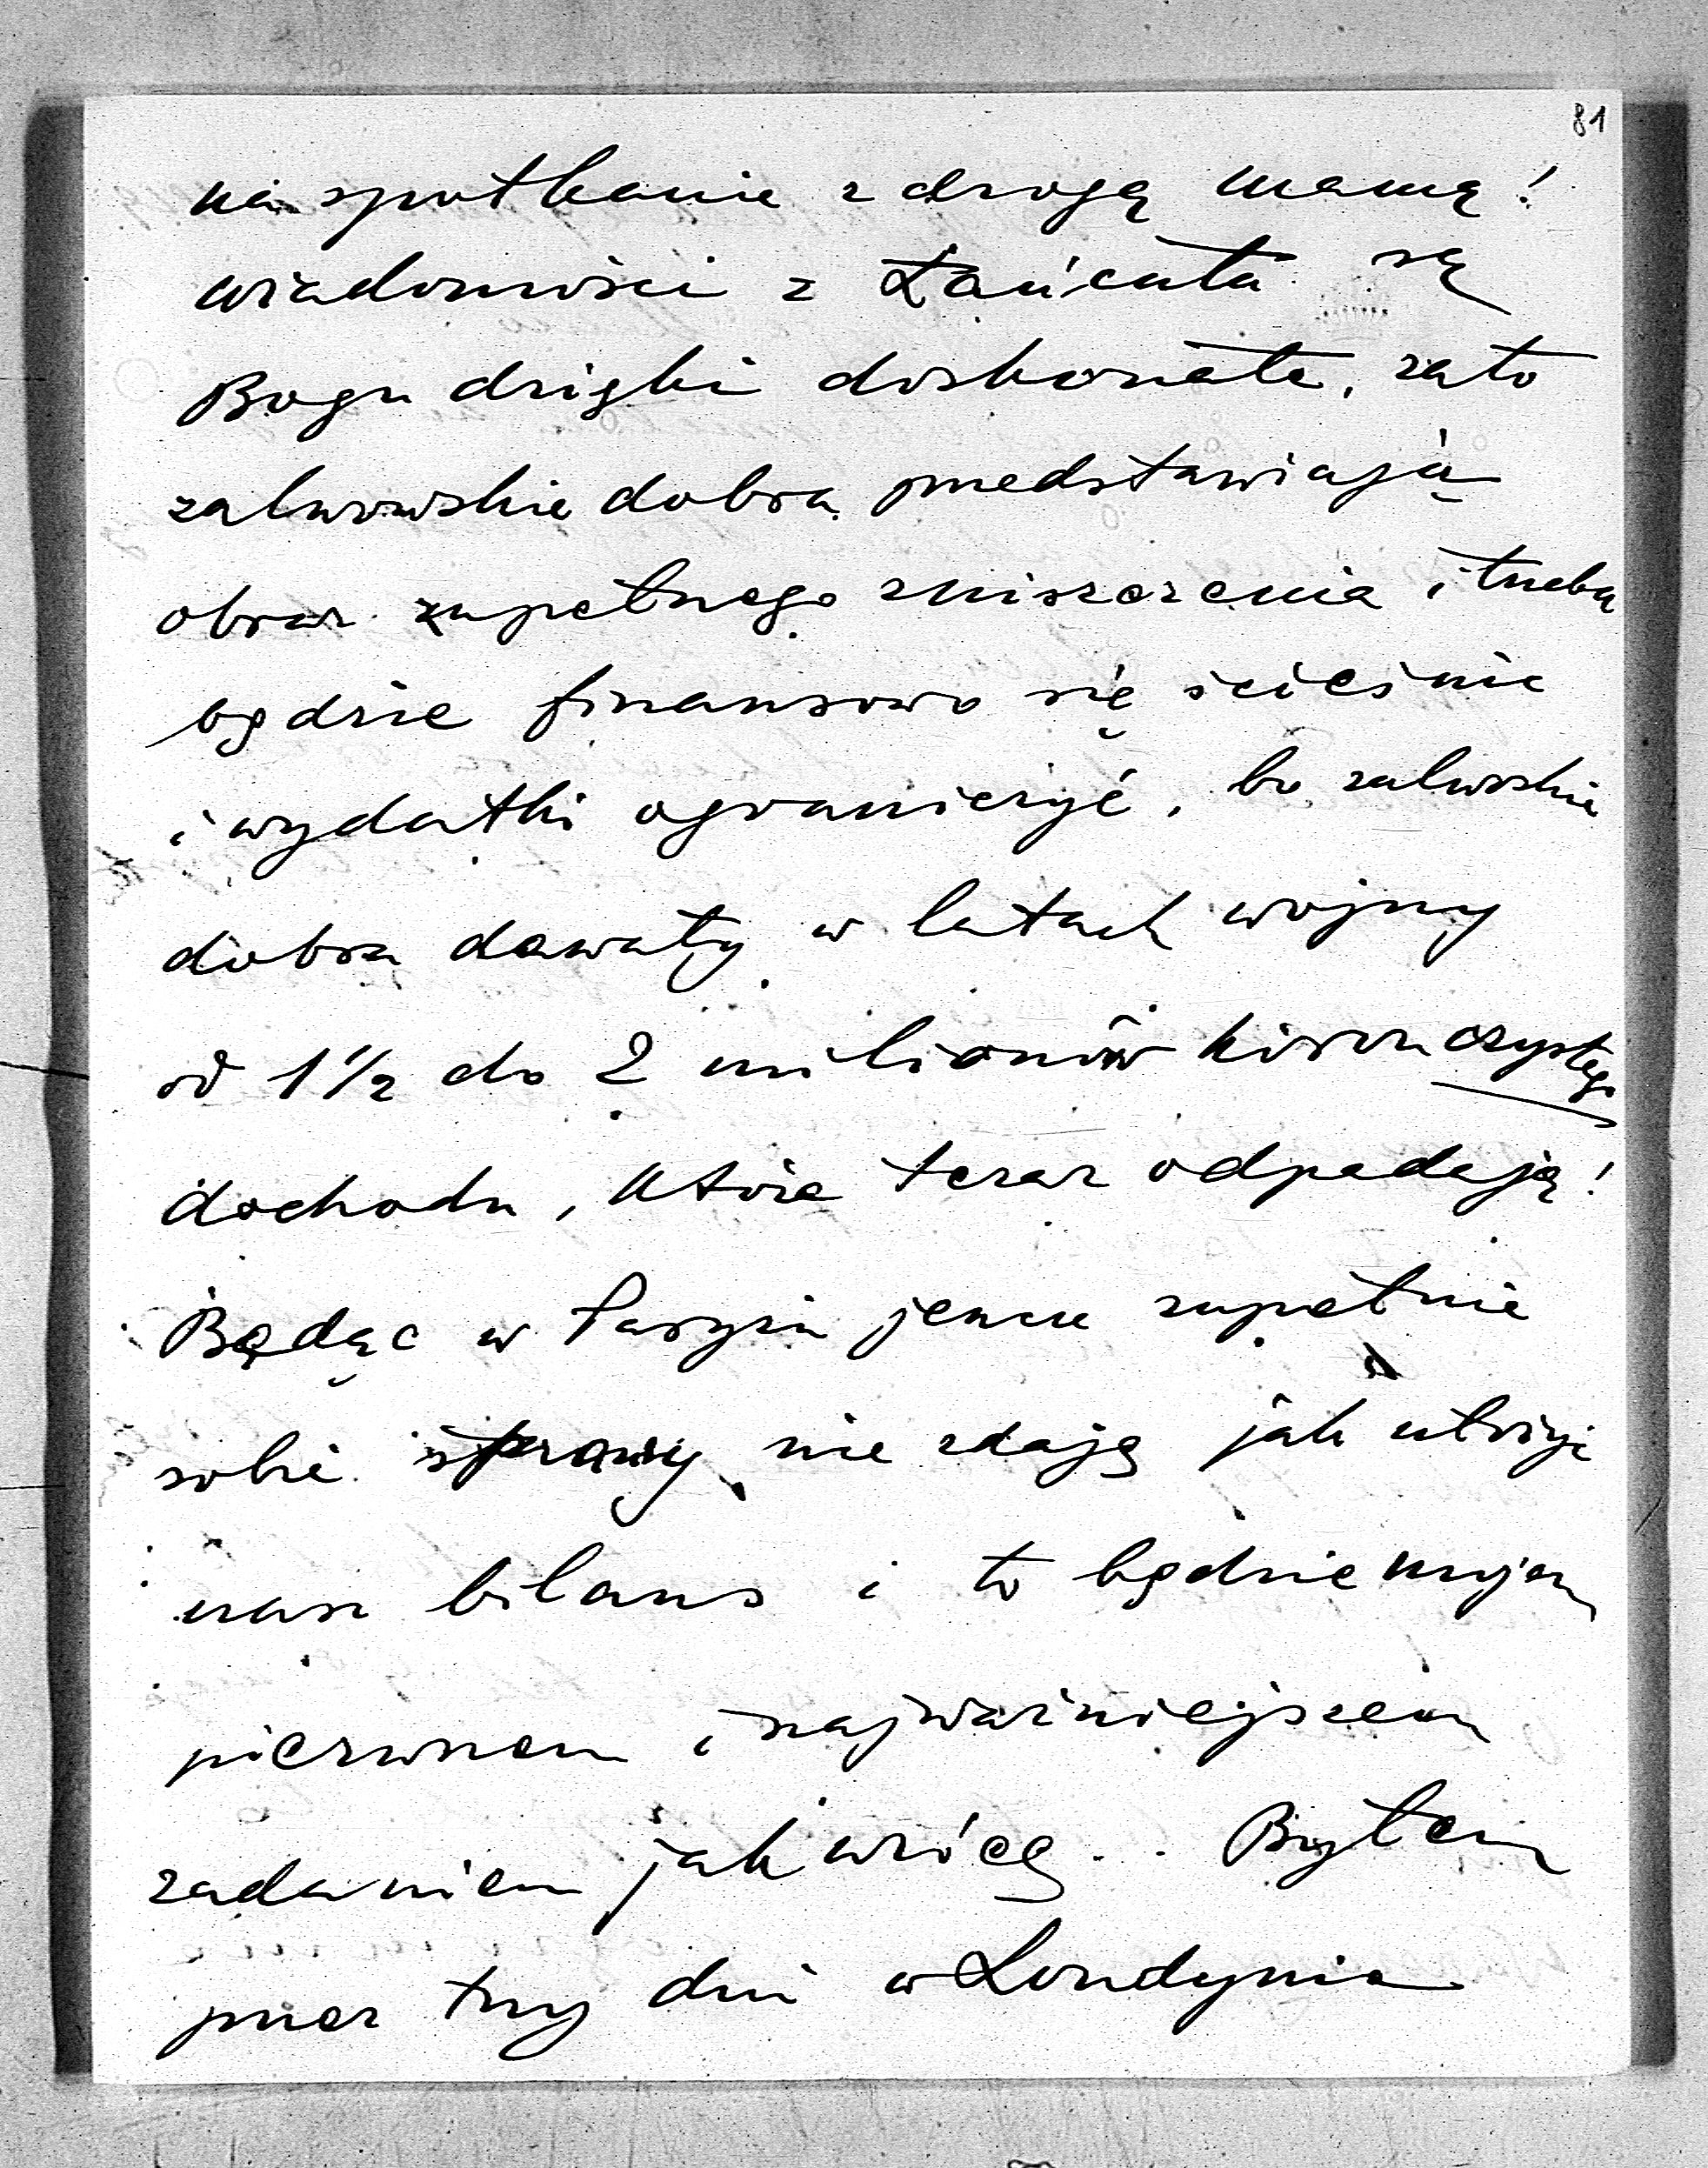 81
na spotkanie z drogą mamą!
wiadomości z Łańcuta są
Bogu dzięki doskonałe, zato
zalwowskie dobra przedstawiają
obraz zupełnego zniszczenia i trzeba
będzie finansowo się ścieśnić
i wydatki ograniczyć, bo zalwoskie
dobra dawały w latach wojny
od 1½ do 2 milionów koron czystego
dochodu, które teraz odpadają!
Będąc w Paryżu jeszcze zupełnie
sobie sprawy nie zdaję jak utożyć
nasz bilans i to będzie mojem
pierwszem i najważniejszem
zadaniem jak wrócę.. Byłem
przez trzy dni w Londynie